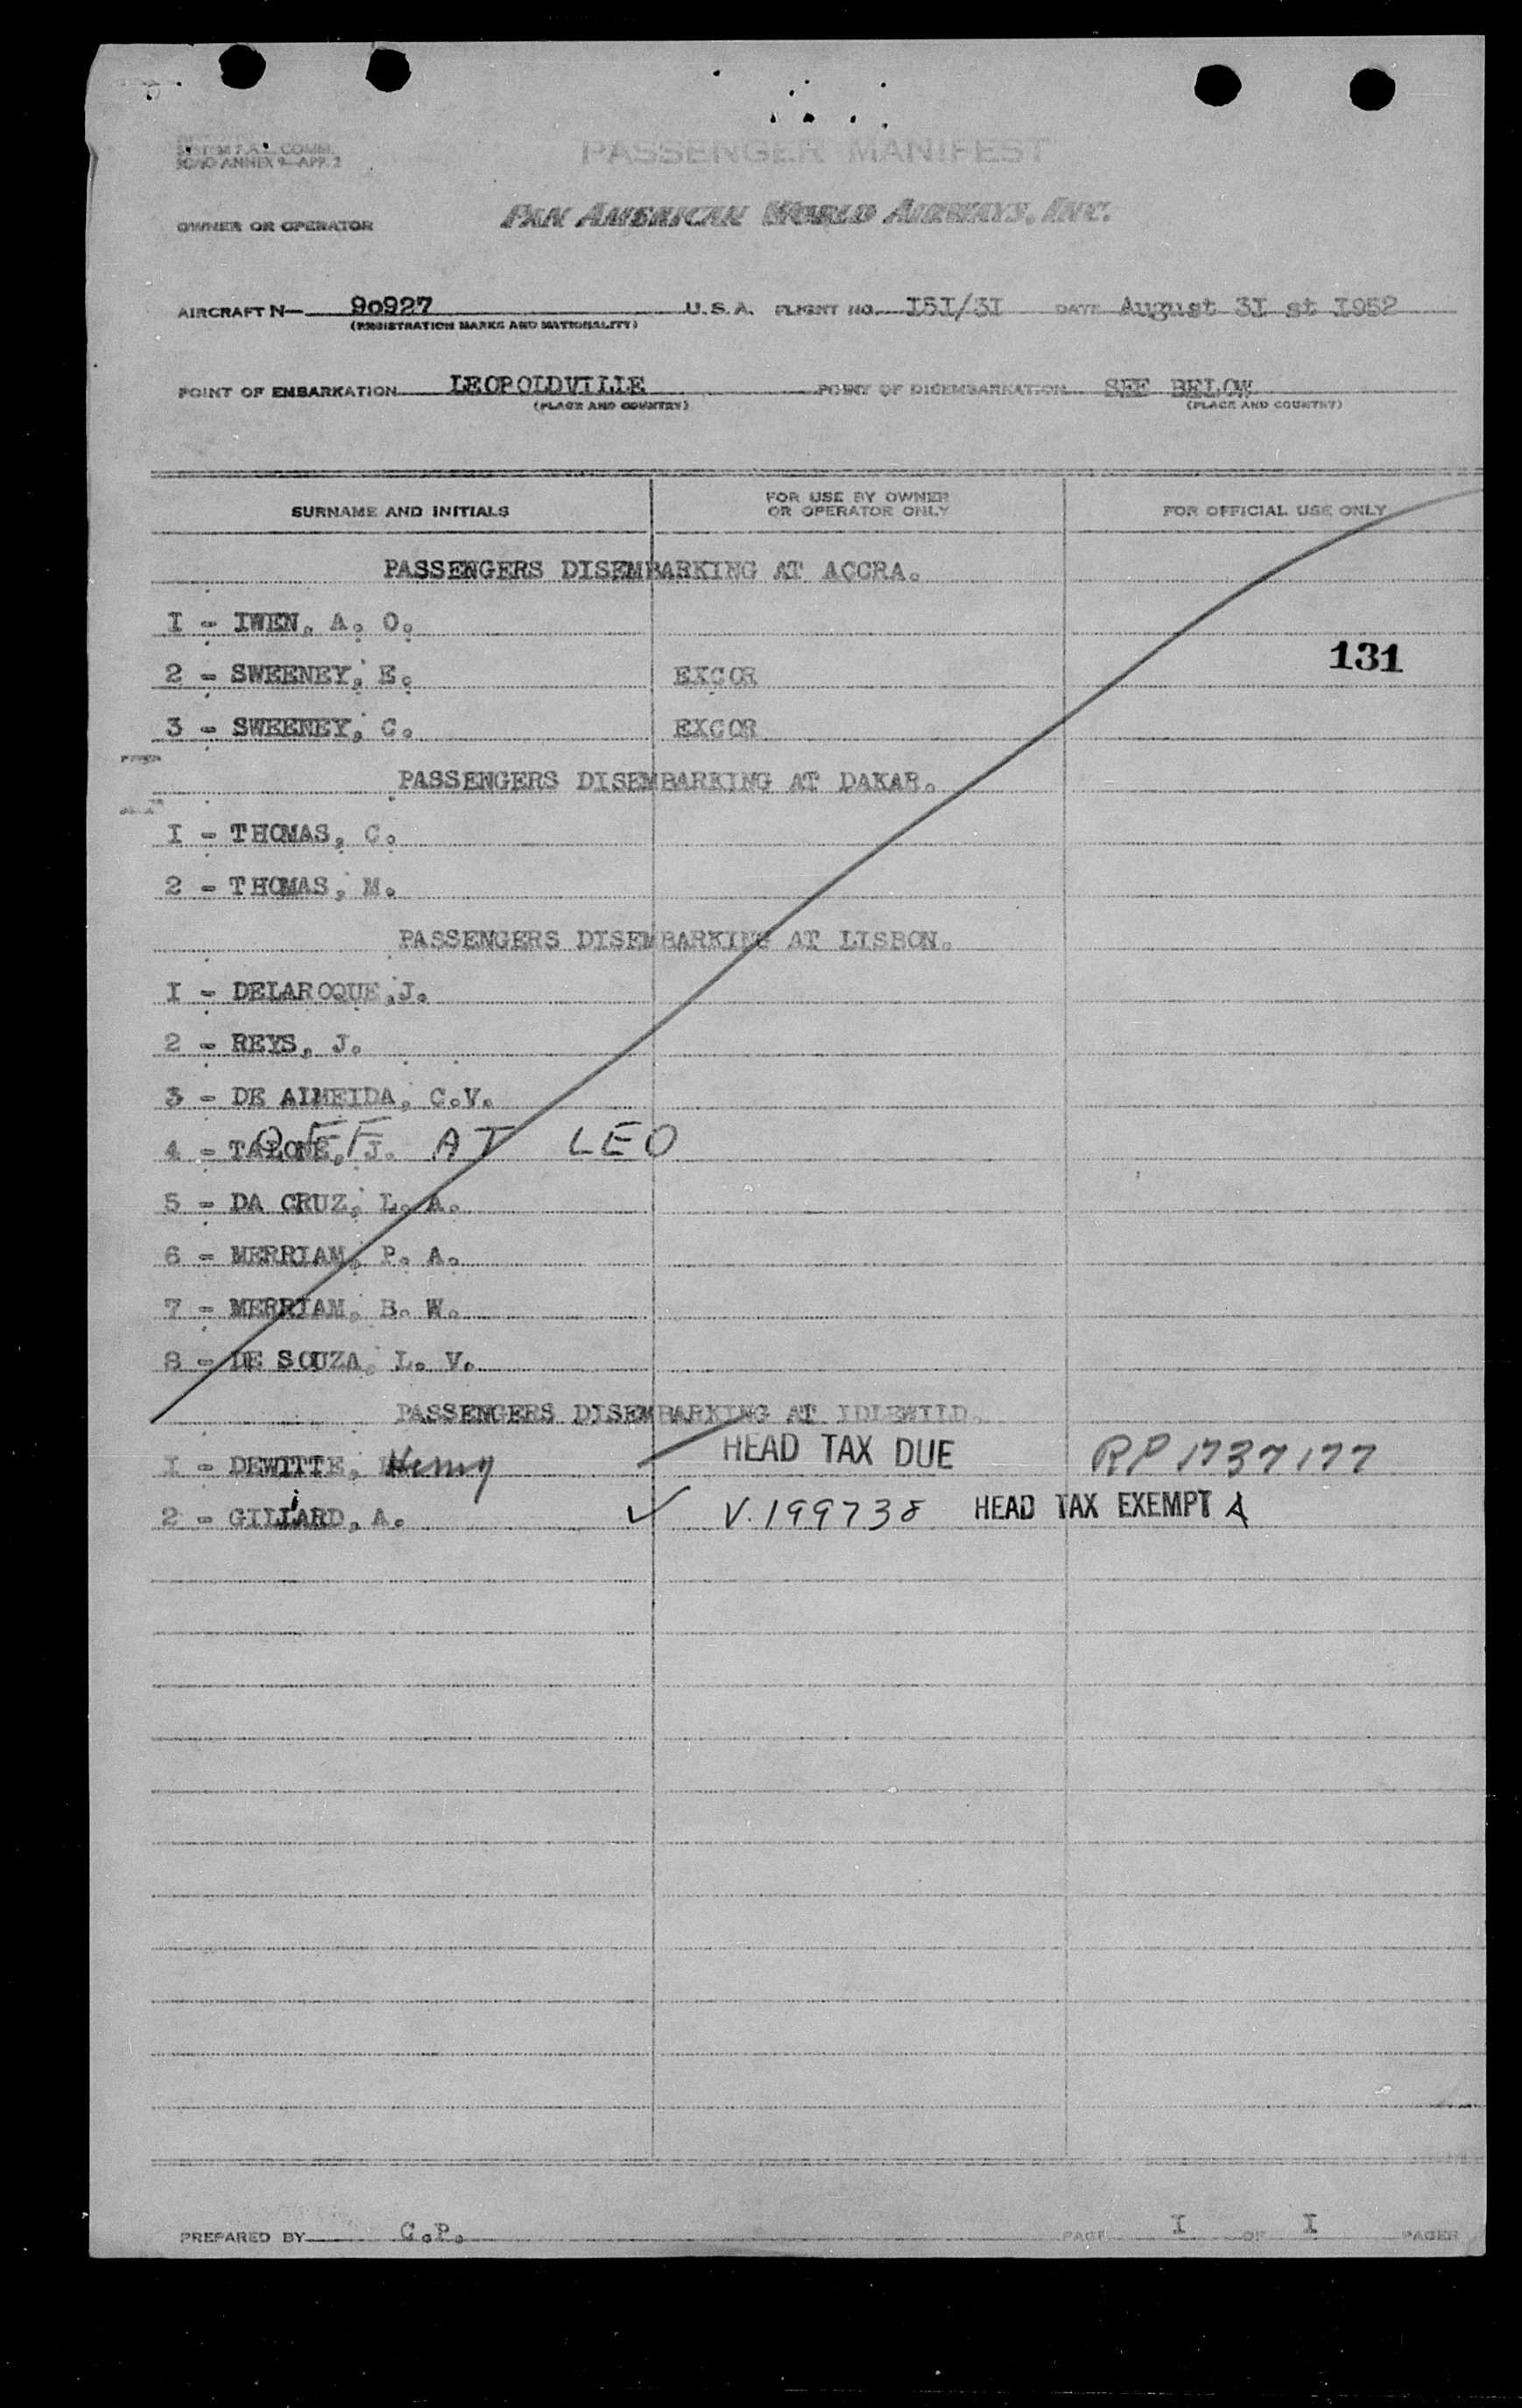 SYSTEM F.A.L. COMM.
ICAO ANNEX 9—APP. 2
PASSENGER MANIFEST
OWNER OR OPERATOR PAN AMERICAN WORLD AIRWAYS, INC.
AIRCRAFT N— 90927 U.S.A. FLIGHT NO. I5I/3I DATE August 3I st I952
(REGISTRATION MARKS AND NATIONALITY)
POINT OF EMBARKATION LEOPOLDVILLE POINT OF DISEMBARKATION SEE BELOW
(PLACE AND COUNTRY) (PLACE AND COUNTRY)
SURNAME AND INITIALS FOR USE BY OWNER OR OPERATOR ONLY FOR OFFICIAL USE ONLY
PASSENGERS DISEMBARKING AT ACCRA.
I - IWEN, A. O.
131
2 - SWEENEY, E. EXCOR
3 - SWEENEY, C. EXCOR
PASSENGERS DISEMBARKING AT DAKAR.
I - THOMAS, C.
2 - THOMAS, M.
PASSENGERS DISEMBARKING AT LISBON.
I - DELAROQUE,J.
2 - REYS, J.
3 - DE ALMEIDA, C.V.
4 - TALONE, J. OFF AT LEO
5 - DA CRUZ, L. A.
6 - MERRIAM, P. A.
7 - MERRIAM, B. W.
8 - DE SOUZA, L. V.
PASSENGERS DISEMBARKING AT IDLEWILD.
I - DEWITTE, Henry HEAD TAX DUE RP 1737177
2 - GILLARD, A. ✓ V.199738 HEAD TAX EXEMPT A
PREPARED BY C.P. PAGE I OF I PAGES